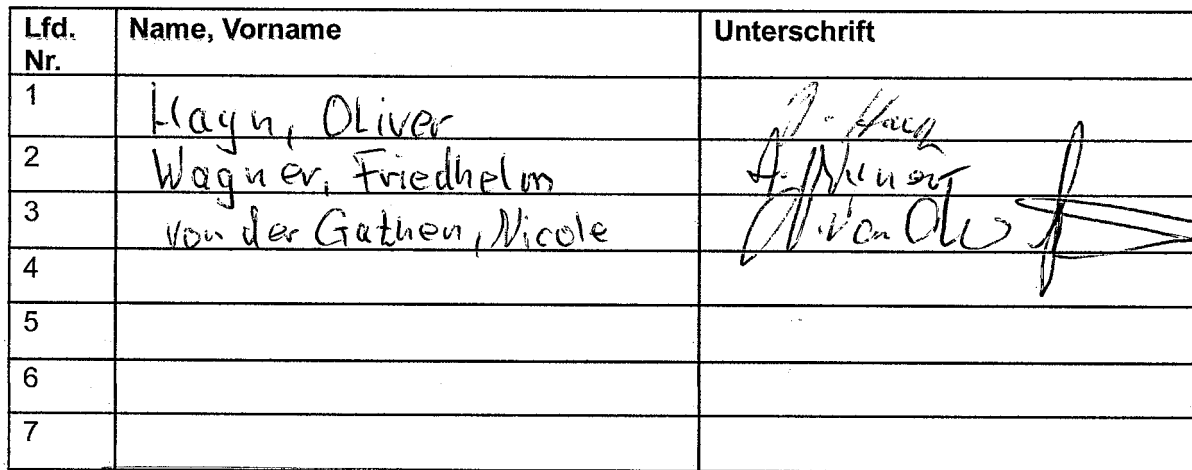 Lfd. Name, Vorname Unterschrift
Nr.
1 Hagn, Oliver
2 Wagner, Friedhelm
3 von der Gathen, Nicole
4
5
6
7